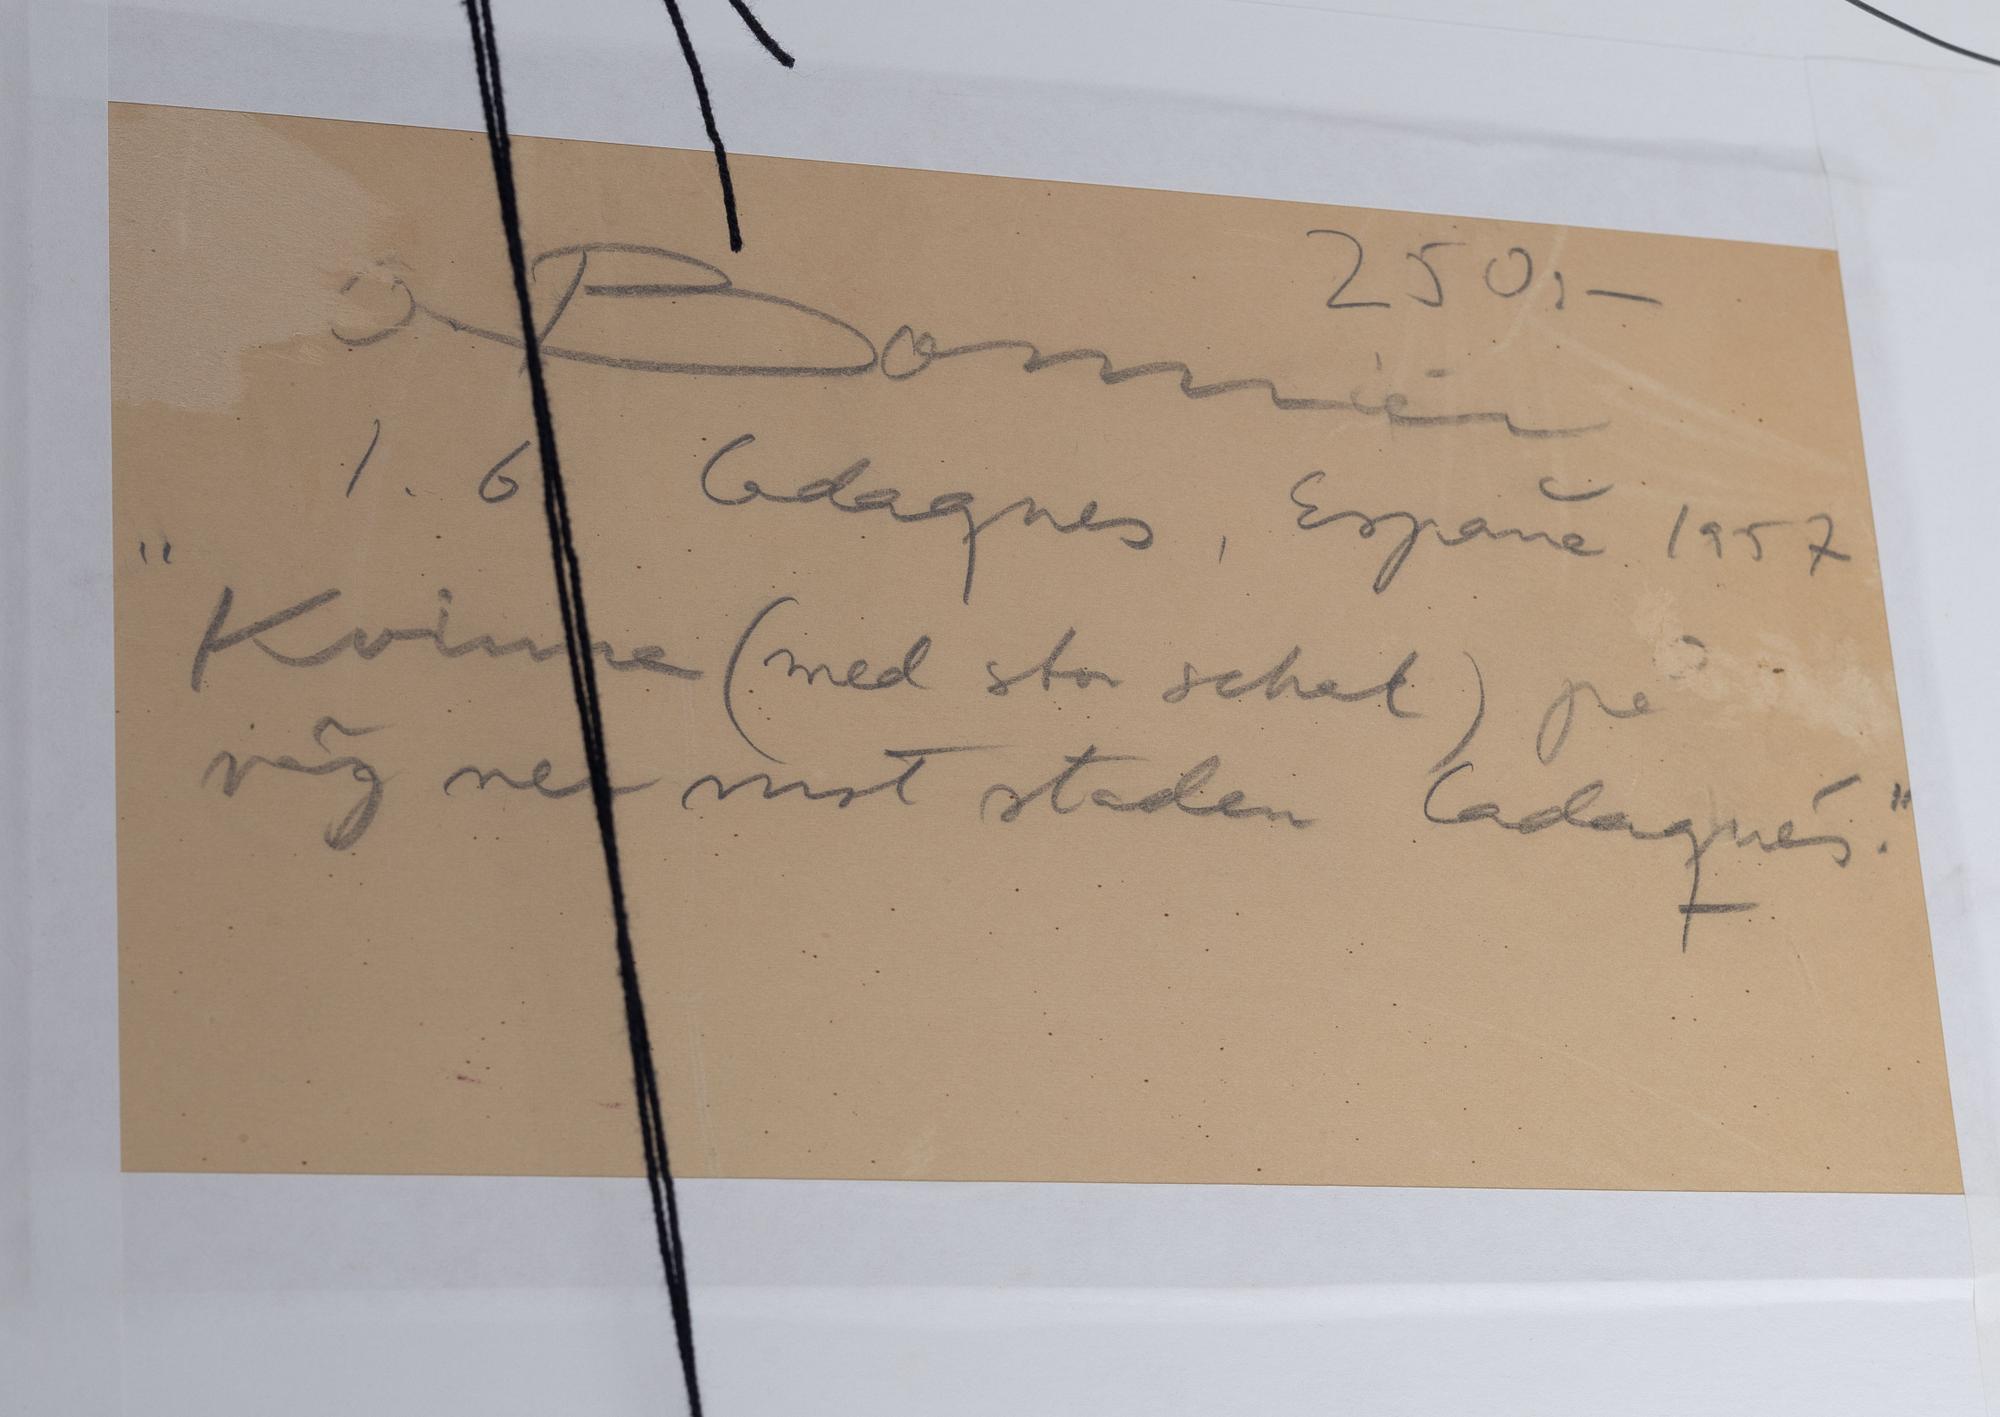 O. Bonniér 250:-
1. 6 Cadaques, España 1957
"Kvinna (med stor schal) på
väg ner mot staden Cadaqués."